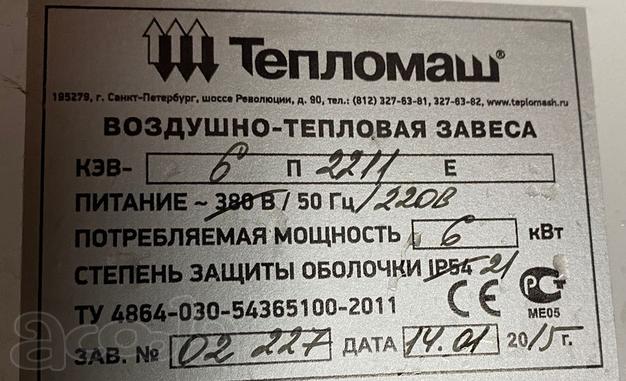 Тепломаш®
195279, г. Санкт-Петербург, шоссе Революции, д. 90, тел.: (812) 327-63-81, 327-63-82, www.teplomash.ru
ВОЗДУШНО-ТЕПЛОВАЯ ЗАВЕСА
КЭВ- 6 П 2211 Е
ПИТАНИЕ ~ 380 В / 50 Гц / 220В
ПОТРЕБЛЯЕМАЯ МОЩНОСТЬ 6 кВт
СТЕПЕНЬ ЗАЩИТЫ ОБОЛОЧКИ IP54 21
ТУ 4864-030-54365100-2011
CE РСТ
МЕ05
ЗАВ. № 02 227 ДАТА 14.01 2015г.